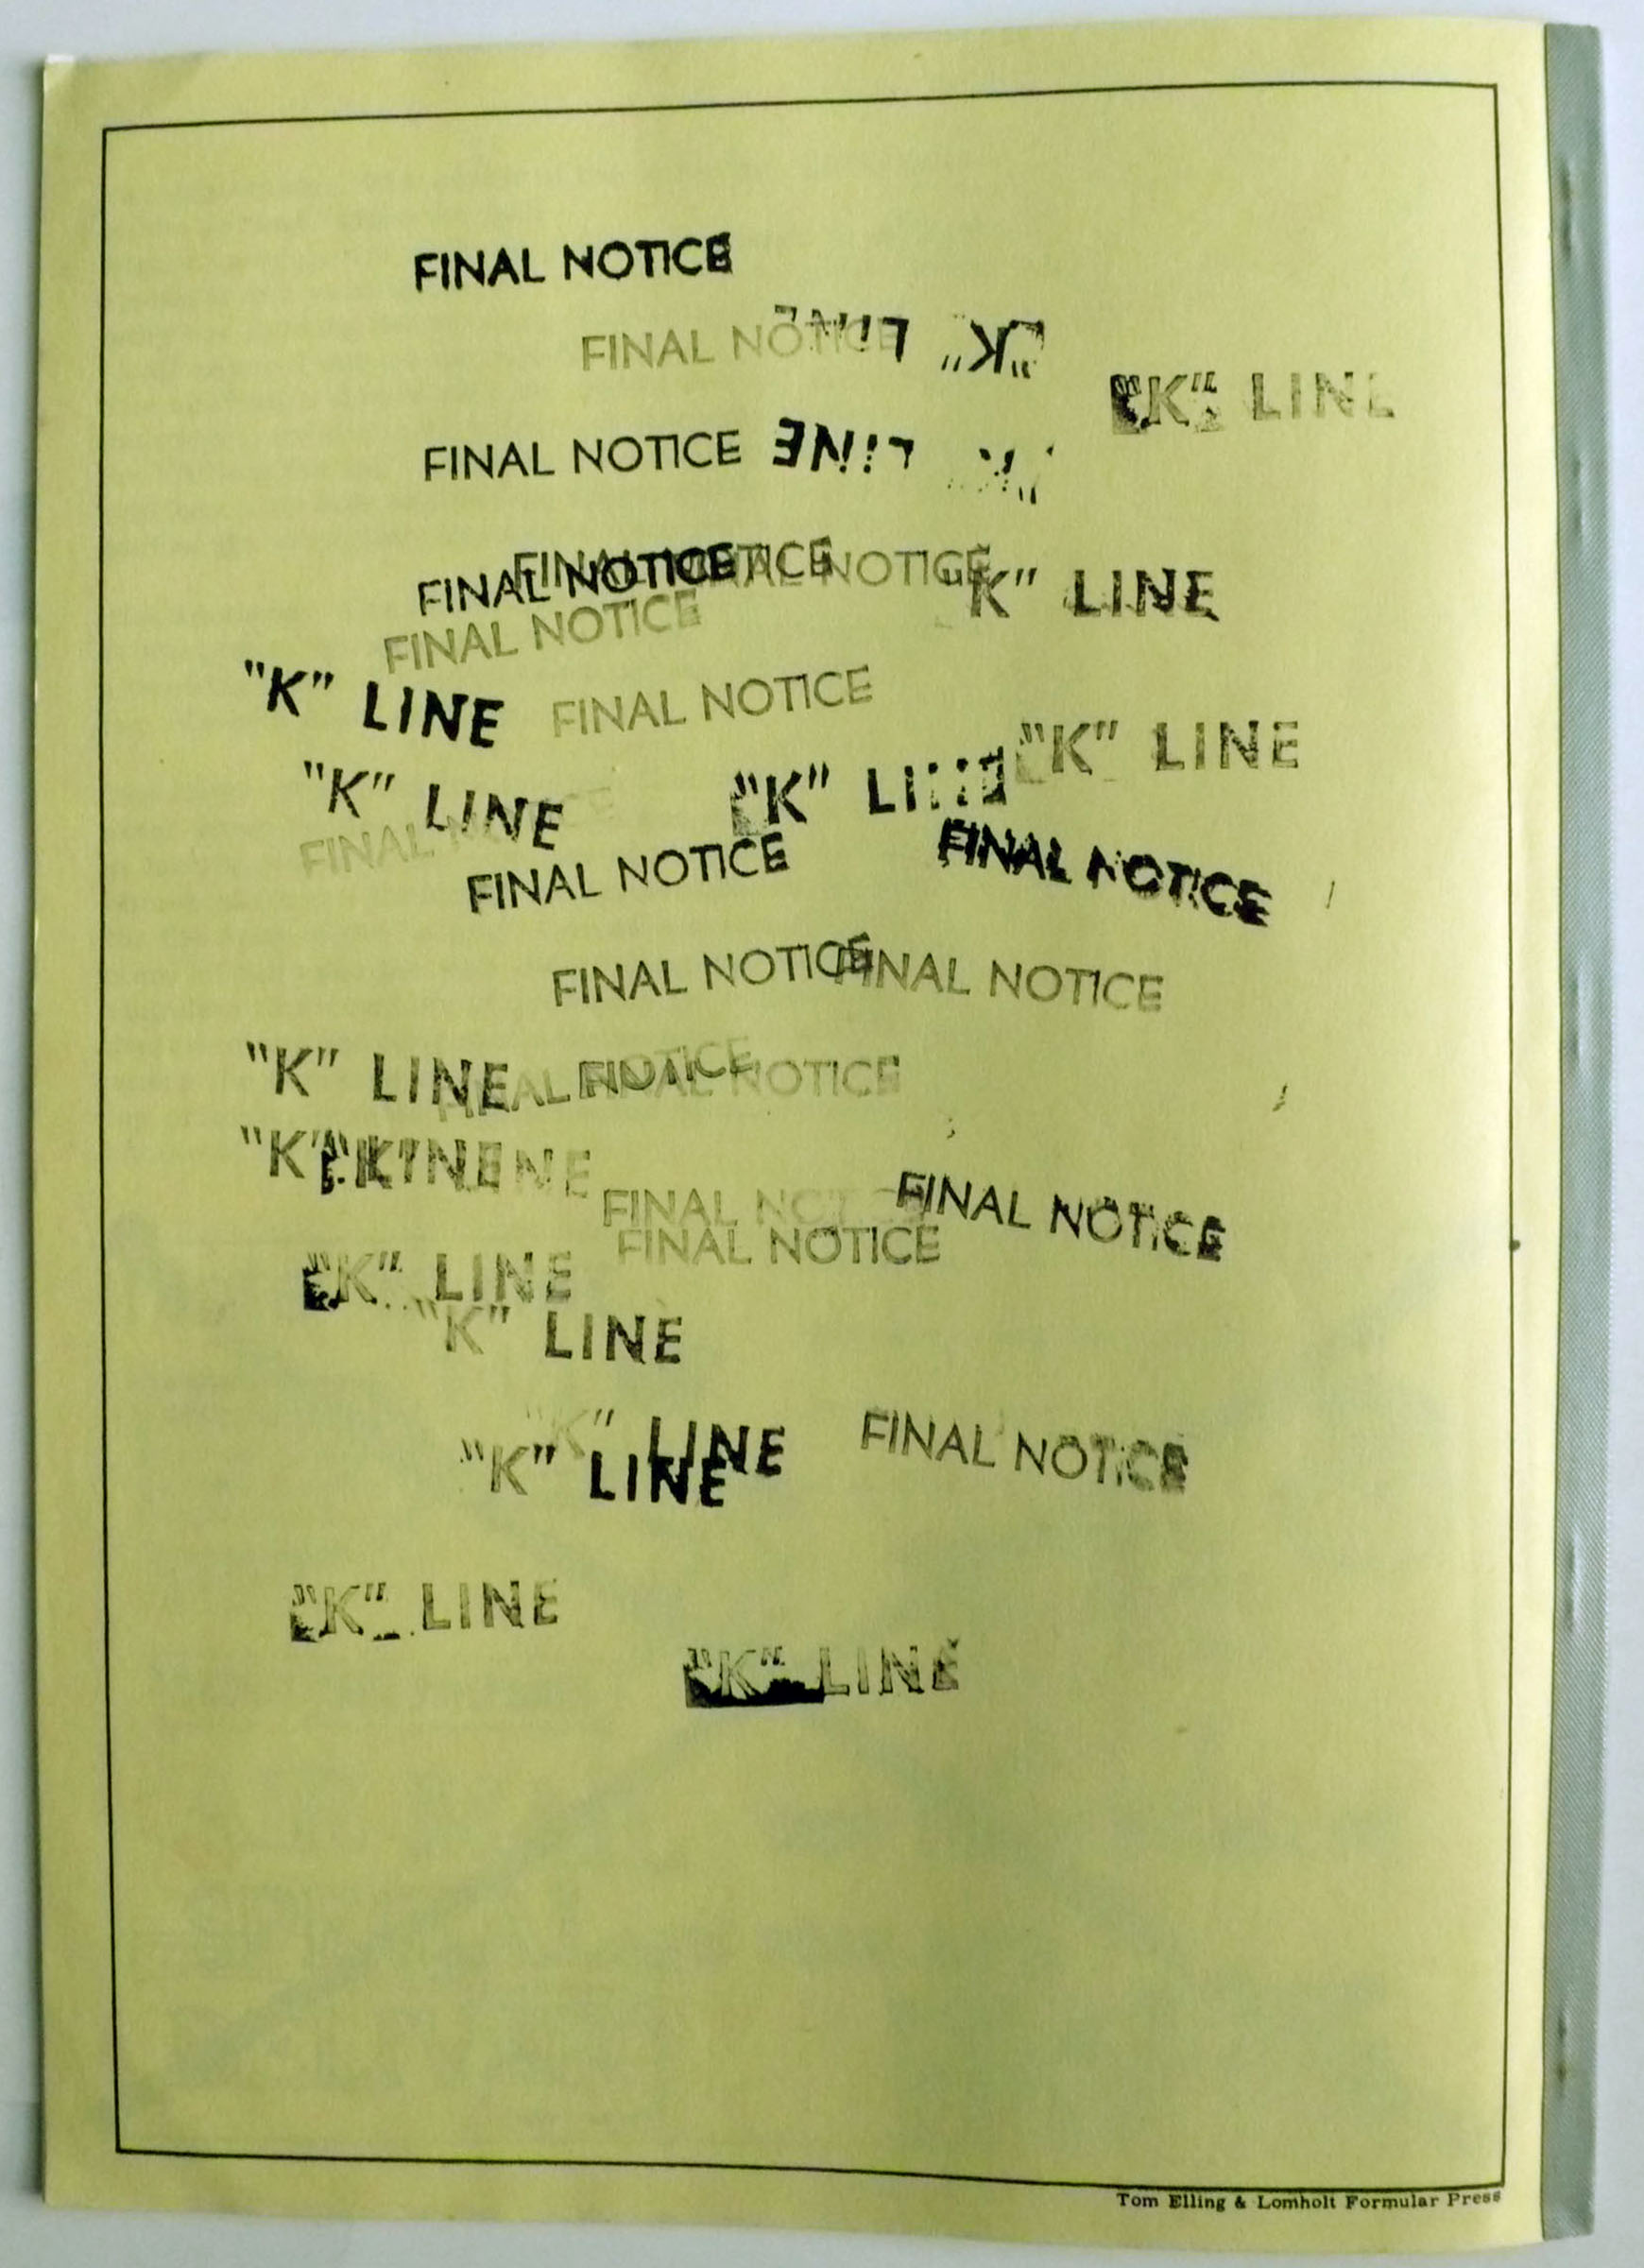 FINAL NOTICE
FINAL NOTICE "K" LINE
"K" LINE
FINAL NOTICE LINE
FINAL NOTICE
FINAL NOTICE
FINAL NOTICE
"K" LINE
FINAL NOTICE
"K" LINE
FINAL NOTICE
"K" LINE
"K" LINE
"K" LI
FINAL
FINAL NOTICE
FINAL NOTICE
FINAL NOTICE
FINAL NOTICE
"K" LINE
NOTICE
FINAL NOTICE
"K"
"K"
FINAL NOTICE
FINAL
FINAL NOTICE
"K" LINE
"K" LINE
"K" LINE
"K" LINE
FINAL NOTICE
"K" LINE
"K" LINE
Tom Elling & Lomholt Formular Press